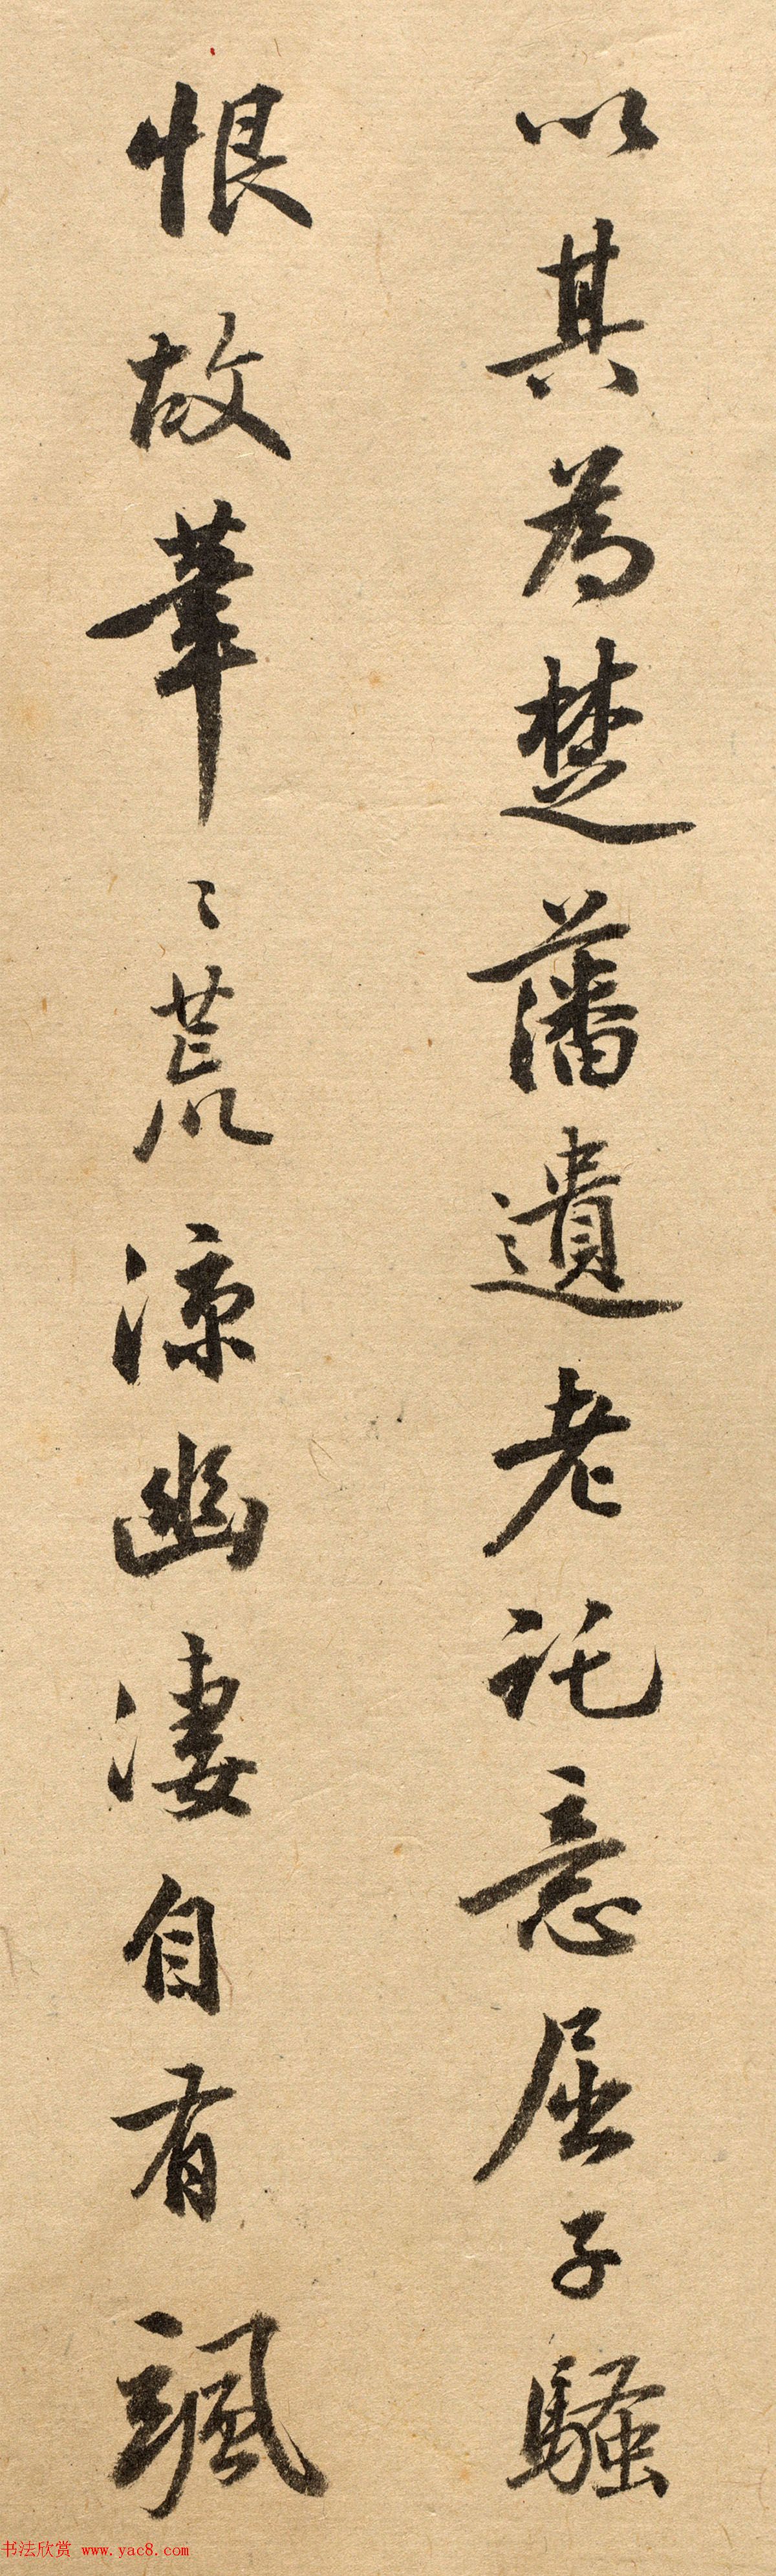 以其為楚藩遺老託意屈子騷
恨故筆〻荒涼幽淒自有颯
书法欣赏 www.yac8.com